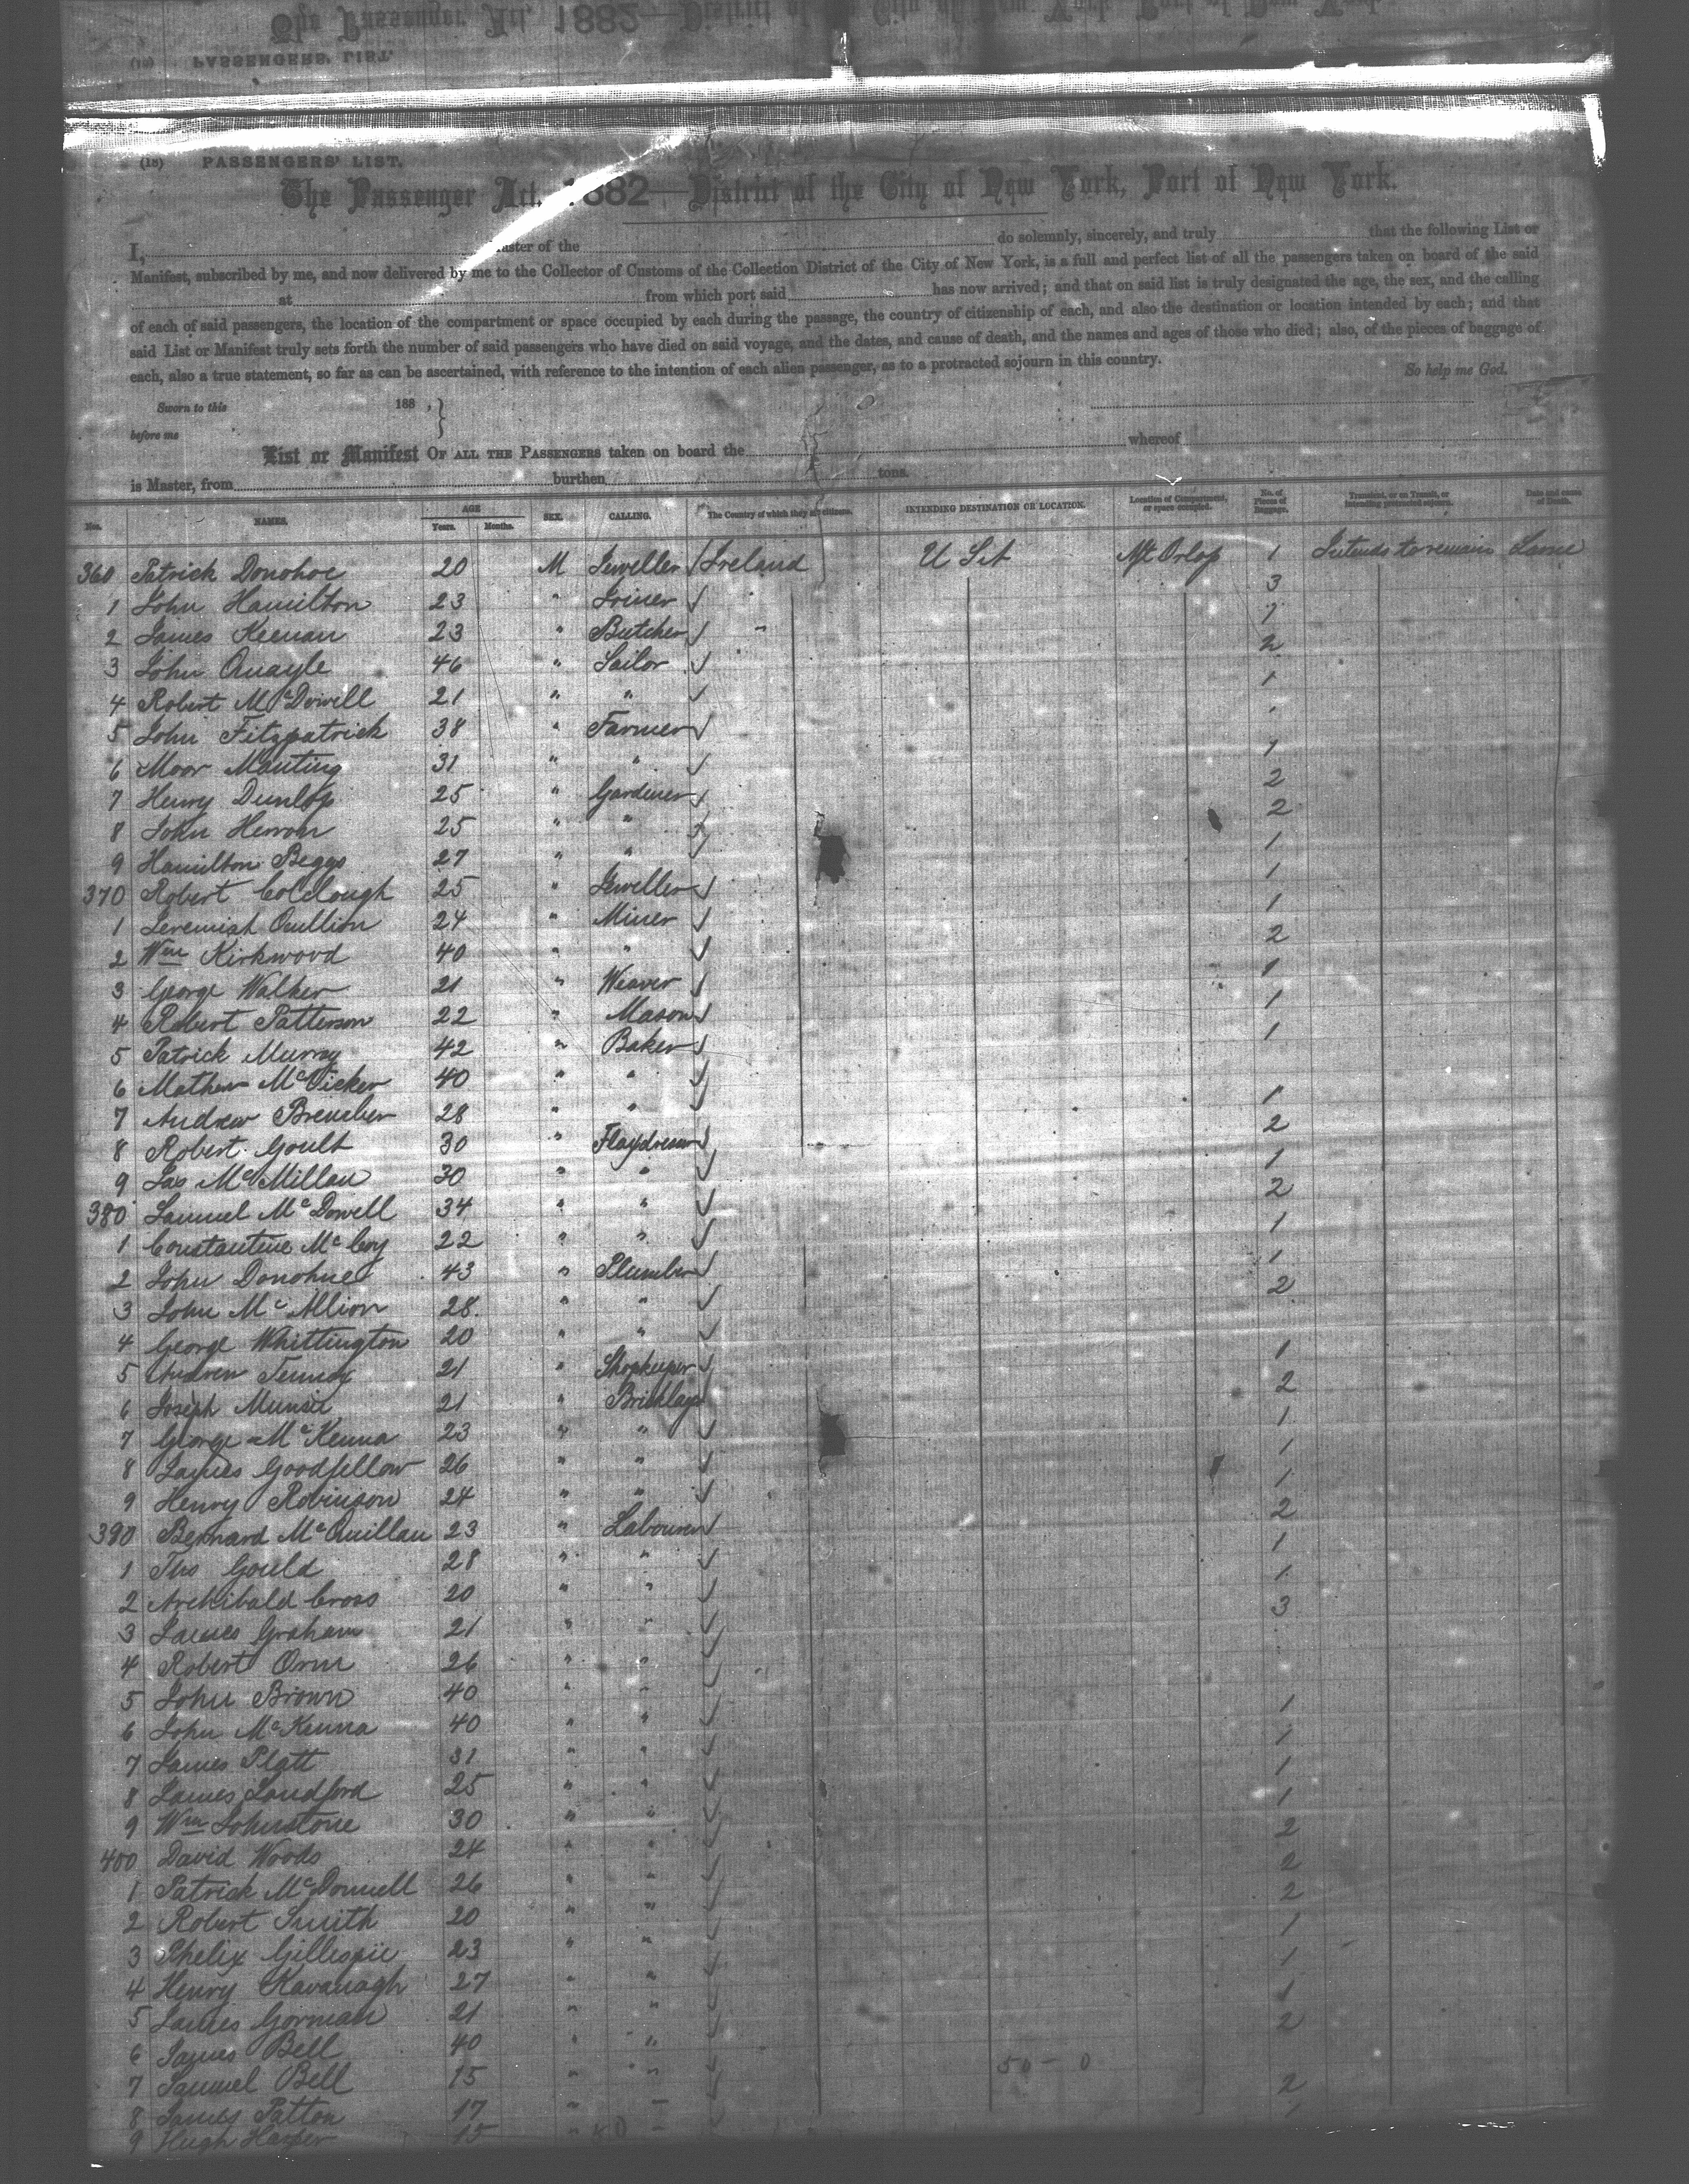 (18) PASSENGERS' LIST.
The Passenger Act, 1882—District of the City of New York, Port of New York.
I, Master of the do solemnly, sincerely, and truly that the following List or
Manifest, subscribed by me, and now delivered by me to the Collector of Customs of the Collection District of the City of New York, is a full and perfect list of all the passengers taken on board of the said
at from which port said has now arrived; and that on said list is truly designated the age, the sex, and the calling
of each of said passengers, the location of the compartment or space occupied by each during the passage, the country of citizenship of each, and also the destination or location intended by each; and that
said List or Manifest truly sets forth the number of said passengers who have died on said voyage, and the dates, and cause of death, and the names and ages of those who died; also, of the pieces of baggage of
each, also a true statement, so far as can be ascertained, with reference to the intention of each alien passenger, as to a protracted sojourn in this country. So help me God.
Sworn to this 188 ,
before me
List or Manifest OF ALL THE PASSENGERS taken on board the whereof
is Master, from burthen tons.
No. NAMES. AGE Years. Months. SEX. CALLING. The Country of which they are citizens. INTENDING DESTINATION OR LOCATION. Location of Compartment, or space occupied. No. of Pieces of Baggage. Transient, or on Transit, or intending protracted sojourn. Date and cause of Death.
360 Patrick Donohoe 20 M Jeweller Ireland U St Orlop 1 Intends to remain
1 John Hamilton 23 " Joiner 3
2 James Keenan 23 " Butcher " 1
3 John Quayle 46 " Sailor 2
4 Robert McDowell 21 " " 1
5 John Fitzpatrick 38 " Farmer
6 Moor 31 " " 1
7 Henry Dunlop 25 " Gardener 2
8 John Herron 25 " " 2
9 Hamilton Beggs 27 " " 1
370 Robert Colclough 25 " Jeweller 1
1 Jeremiah 24 " Miner 1
2 Wm Kirkwood 40 " " 2
3 George Walker 21 " Weaver 1
4 Robert Patterson 22 " Mason 1
5 Patrick Murray 42 " Baker 1
6 Mathew McVicker 40 " "
7 Andrew 28 " " 1
8 Robert Goult 30 " 2
9 Jas McMillan 30 " " 1
380 Samuel McDowell 34 " " 2
1 Constantine McCoy 22 " " 1
2 John Donohue 43 " Plumber 1
3 John McAllion 28 " " 2
4 George Whittington 20 " "
5 Andrew 21 " Shopkeeper 1
6 Joseph 21 " Bricklayer 2
7 George McKenna 23 " " 1
8 James Goodfellow 26 " " 1
9 Henry Robinson 24 " " 1
390 Bernard McQuillan 23 " Labourer 2
1 Thos Gould 28 " " 1
2 Archibald Cross 20 " " 1
3 James Graham 21 " " 3
4 Robert Orm 26 " "
5 John Brown 40 " "
6 John McKenna 40 " " 1
7 James Platt 31 " " 1
8 James Sandford 25 " " 1
9 Wm Johnstone 30 " " 1
400 David Woods 24 " " 2
1 Patrick McDonnell 26 " " 2
2 Robert Smith 20 " " 2
3 Phelix Gillespie 23 " " 1
4 Henry Kavanagh 27 " " 1
5 James Gorman 21 " " 1
6 James Bell 40 " " 2
7 Samuel Bell 15 " " 50 - 0
8 James Patton 17 " 2
9 Hugh Harper 15 "